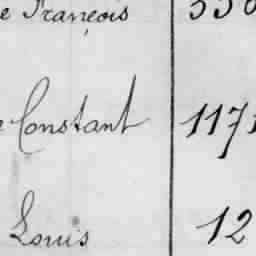 e François 550
e Constant 1171
Louis 12